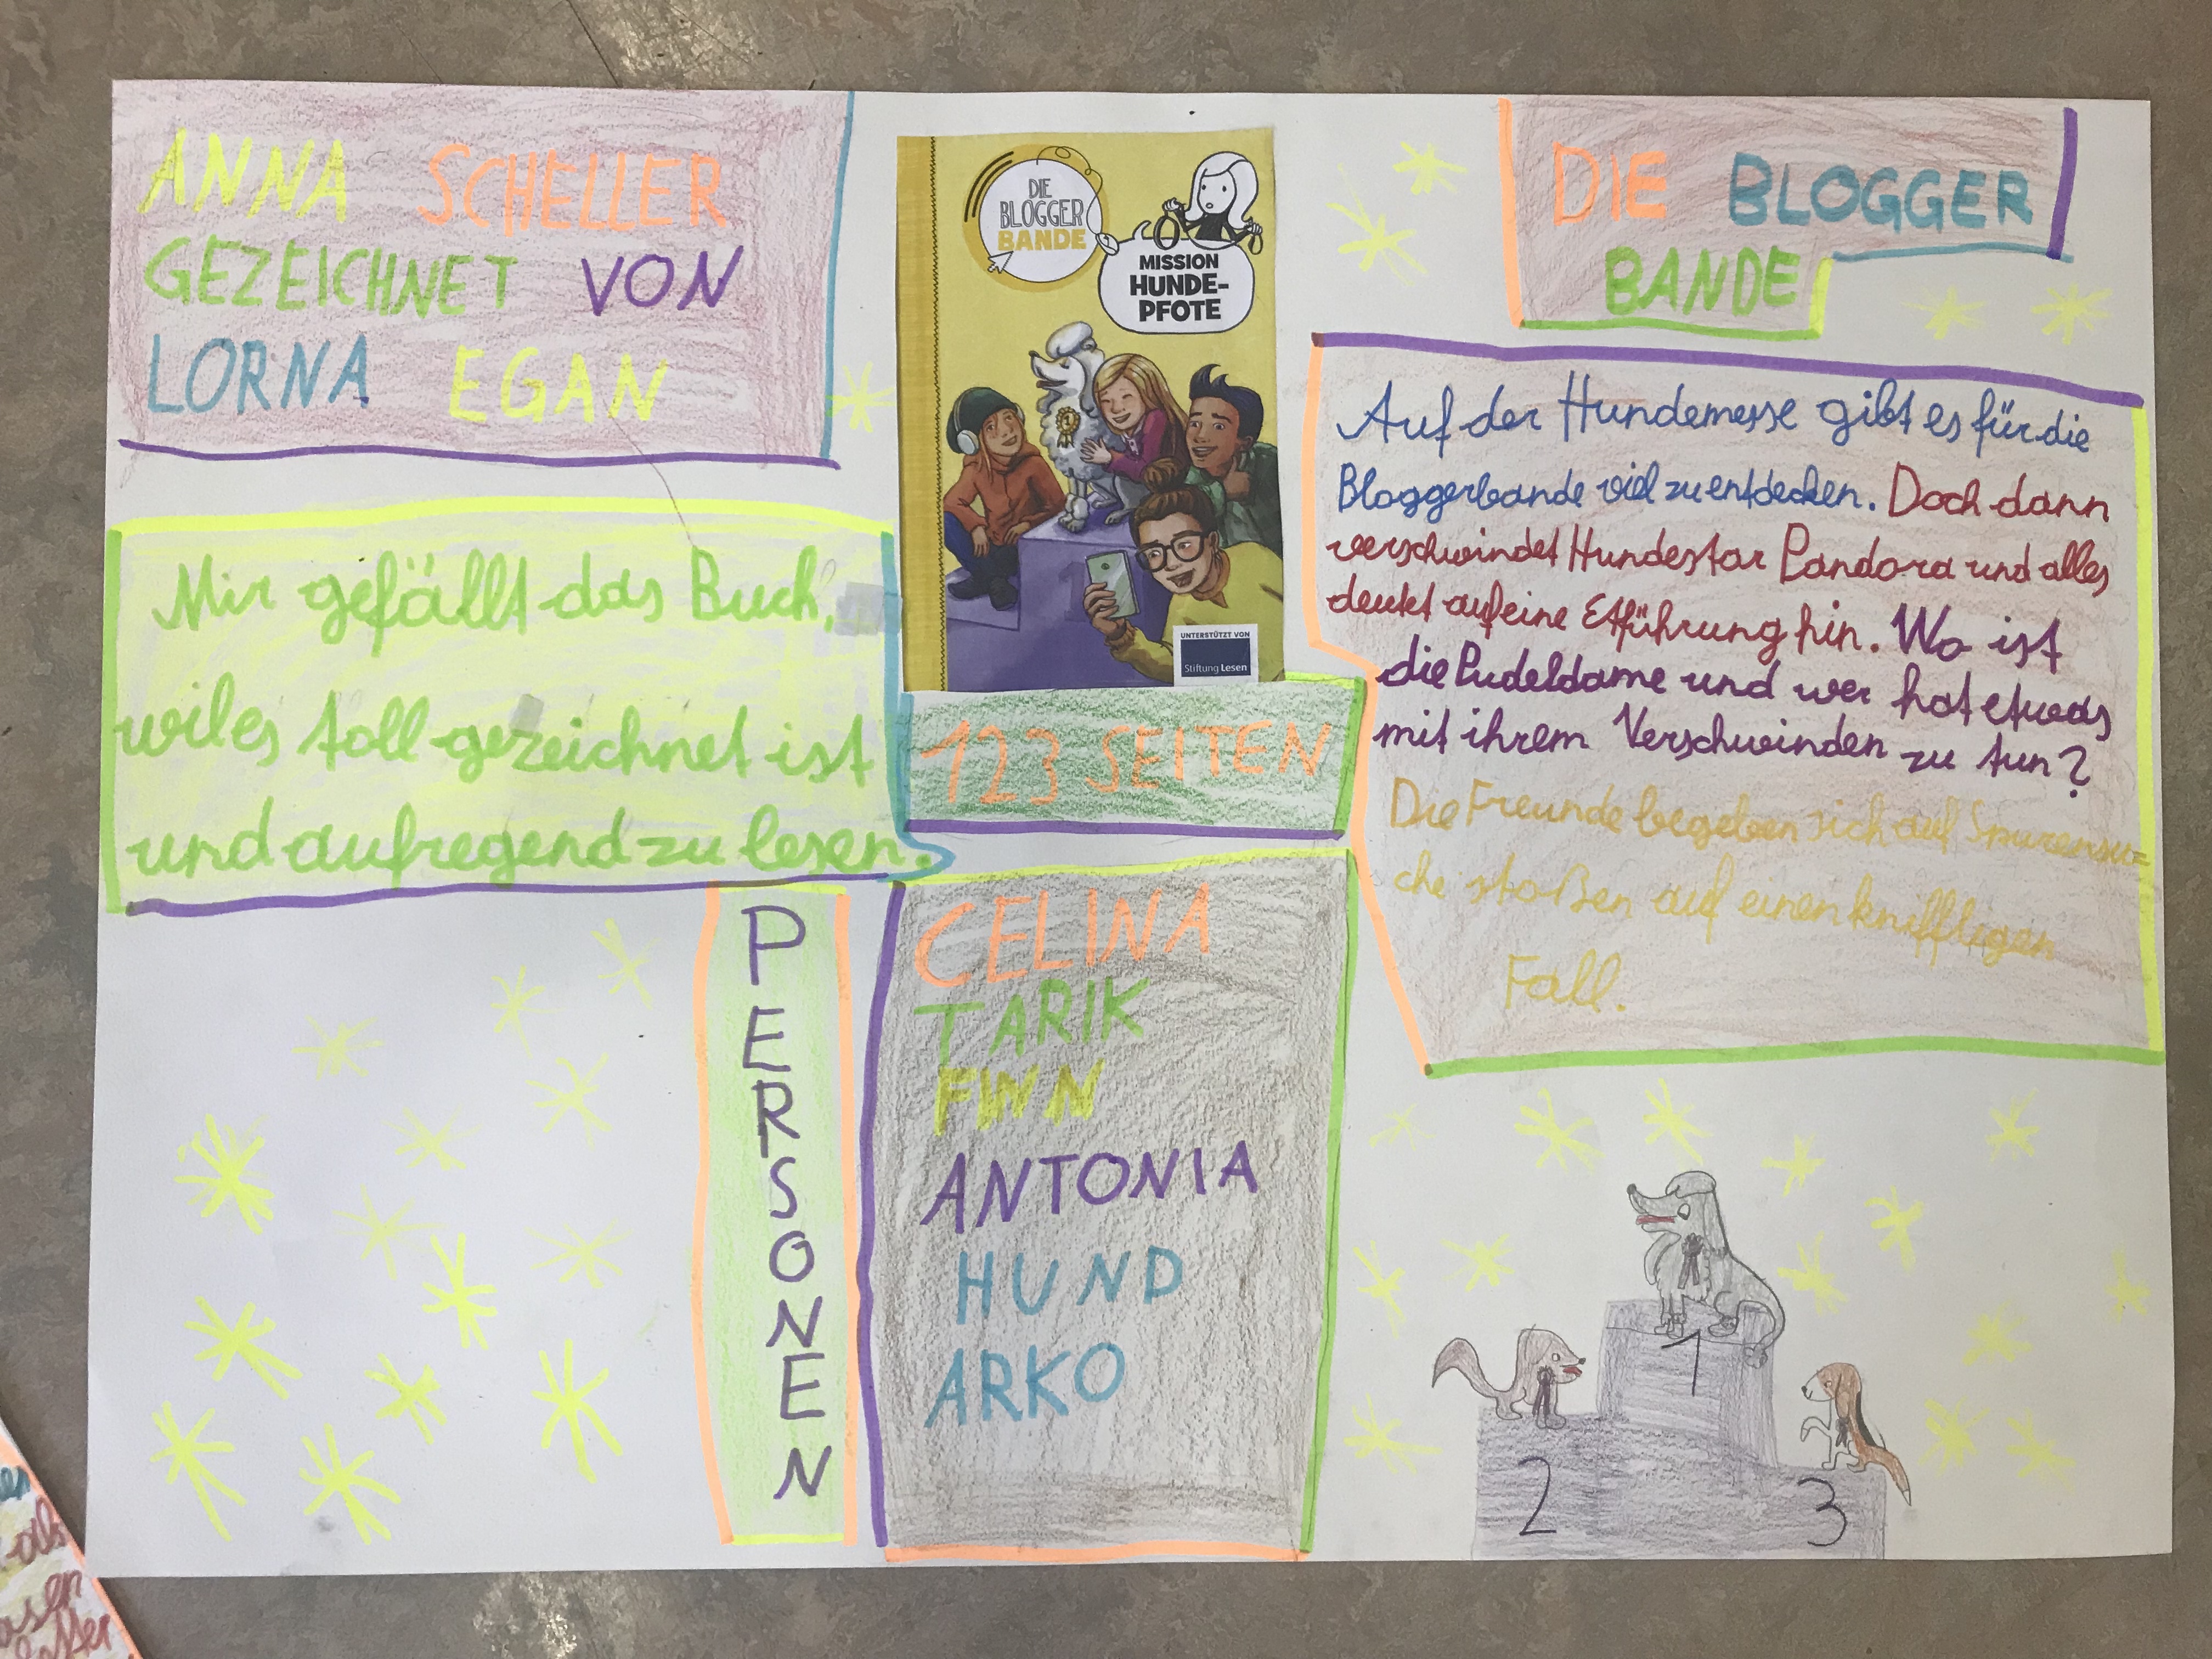 ANNA SCHELLER
GEZEICHNET VON
LORNA EGAN
Mir gefällt das Buch,
wil es toll gezeichnet ist
und aufregend zu lesen.
DIE
BLOGGER
BANDE
MISSION
HUNDE-
PFOTE
1
UNTERSTÜTZT VON
Stiftung Lesen
123 SEITEN
PERSONEN
CELINA
TARIK
FINN
ANTONIA
HUND
ARKO
DIE BLOGGER
BANDE
Auf der Hundemesse gibt es für die
Bloggerbande viel zu entdecken. Doch dann
verschwindet Hundestar Pandora und alles
deutet auf eine Etführung hin. Wo ist
die Pudeldame und wer hat etwas
mit ihrem Verschwinden zu tun?
Die Freunde begeben sich auf Spurensu=
che stoßen auf einen kniffligen
Fall.
1
2
3